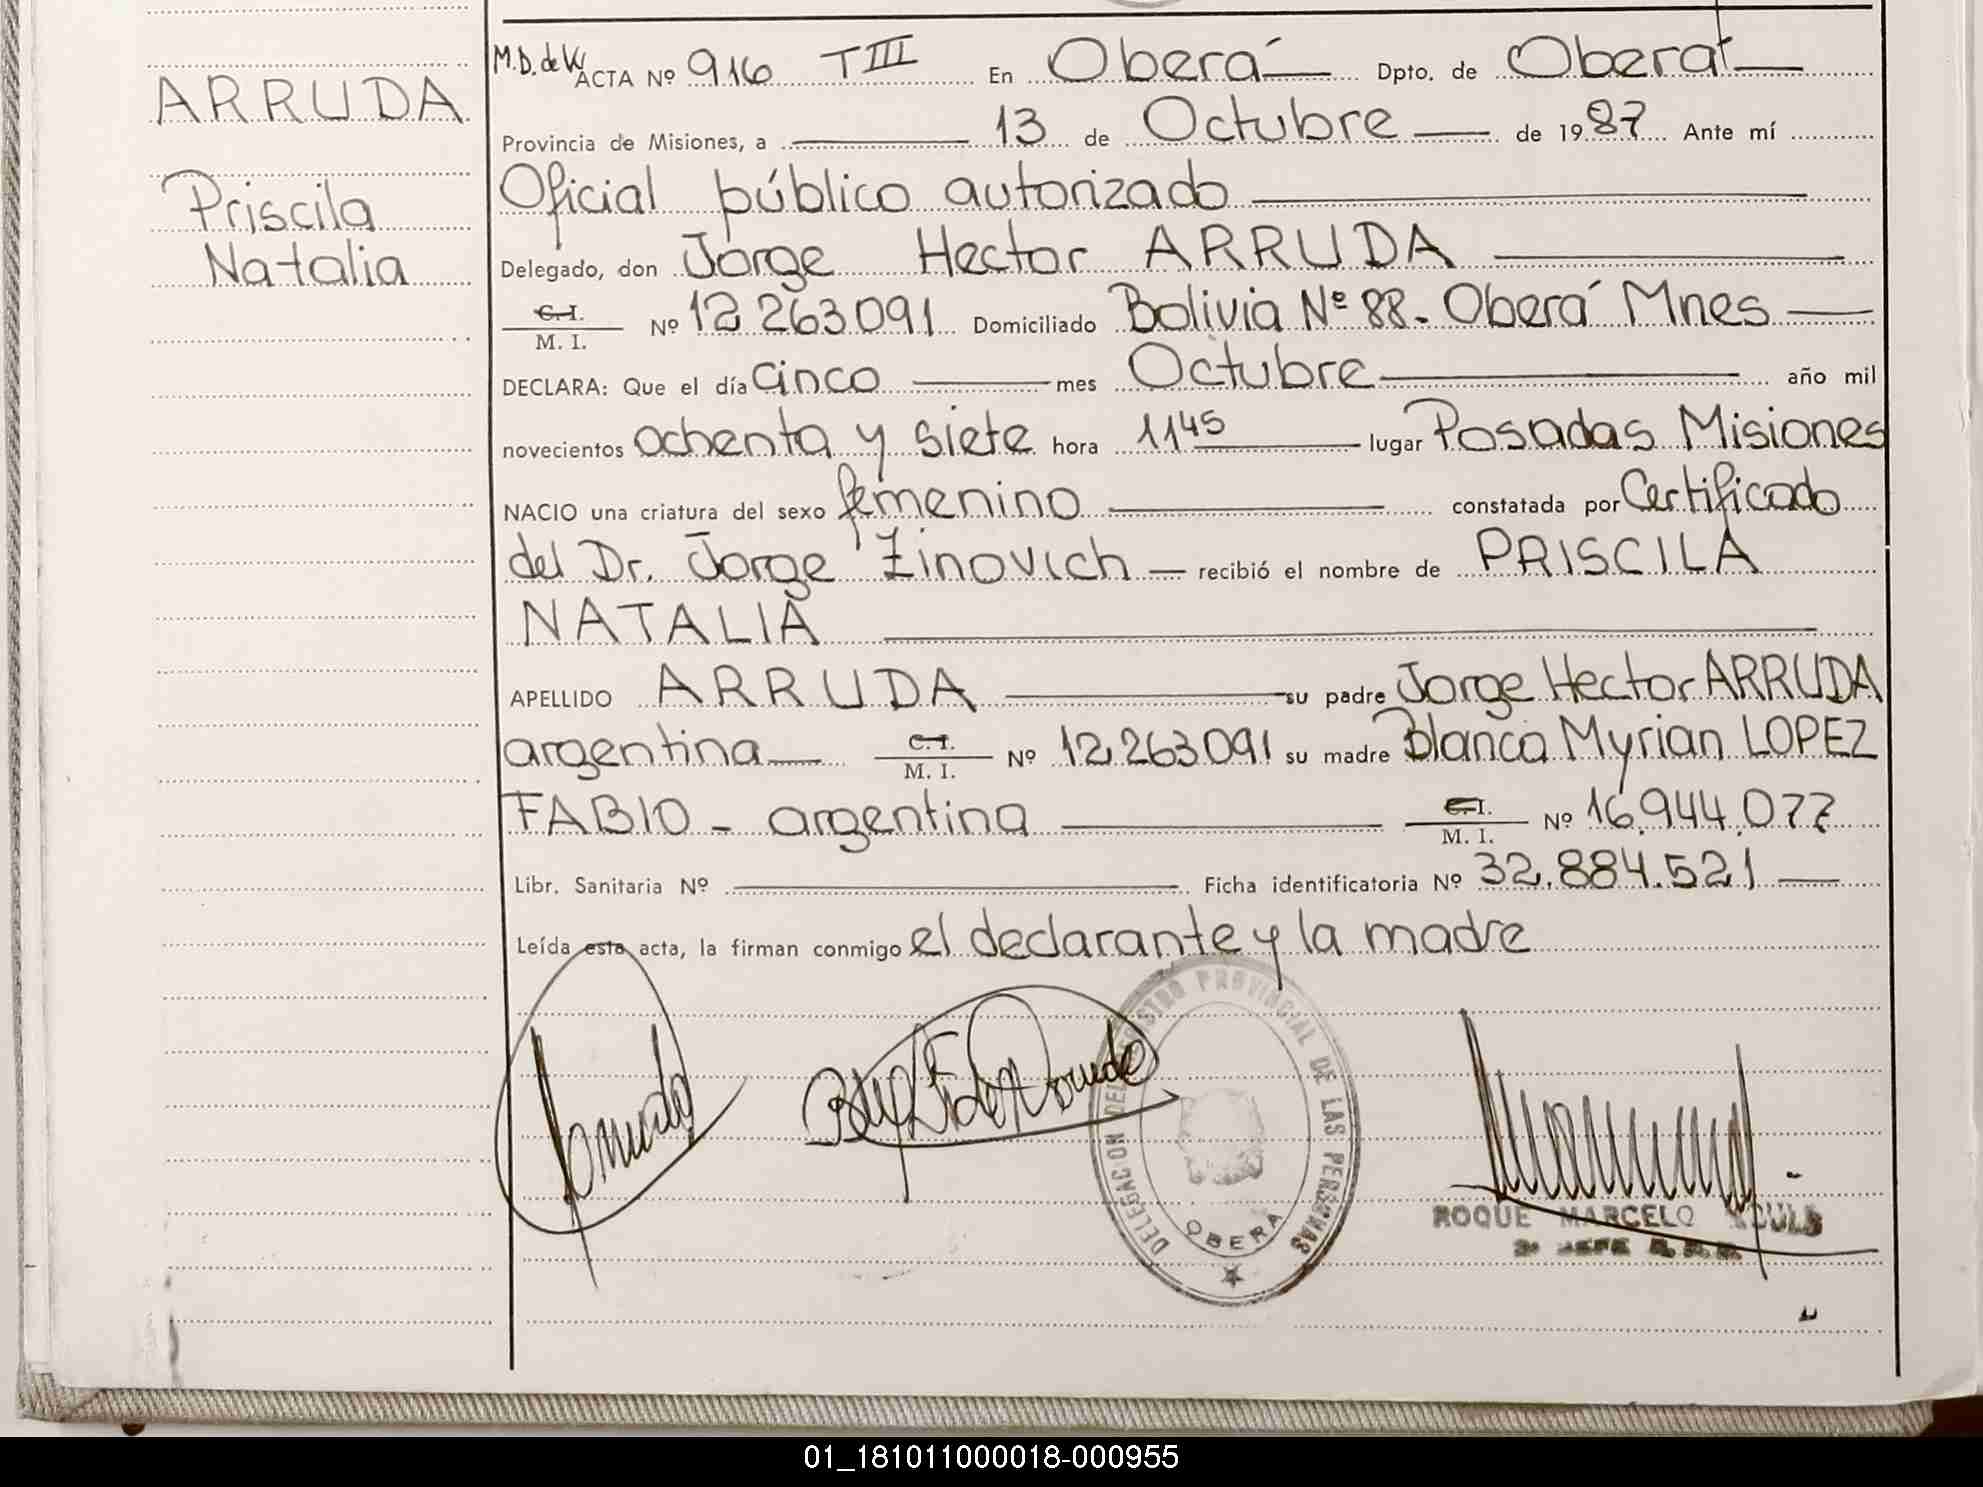 ARRUDA
Priscila
Natalia
M.D. de W
ACTA Nº 916 TIII En Oberá Dpto. de Oberá
Provincia de Misiones, a 13 de Octubre de 1987 Ante mí
Oficial público autorizado
Delegado, don Jorge Hector ARRUDA
C.I. / M. I. Nº 12 263.091 Domiciliado Bolivia Nº 88. Oberá Mnes
DECLARA: Que el día cinco mes Octubre año mil
novecientos ochenta y siete hora 1145 lugar Posadas Misiones
NACIO una criatura del sexo femenino constatada por Certificado
del Dr. Jorge Zinovich recibió el nombre de PRISCILA
NATALIA
APELLIDO ARRUDA su padre Jorge Hector ARRUDA
argentina C.I. / M. I. Nº 12.263.091 su madre Blanca Myrian LOPEZ
FABIO - argentina C.I. / M. I. Nº 16.944.077
Libr. Sanitaria Nº Ficha identificatoria Nº 32.884.521
Leída esta acta, la firman conmigo el declarante y la madre
DELEGACION DEL REGISTRO PROVINCIAL DE LAS PERSONAS
OBERA
ROQUE MARCELO
01_181011000018-000955